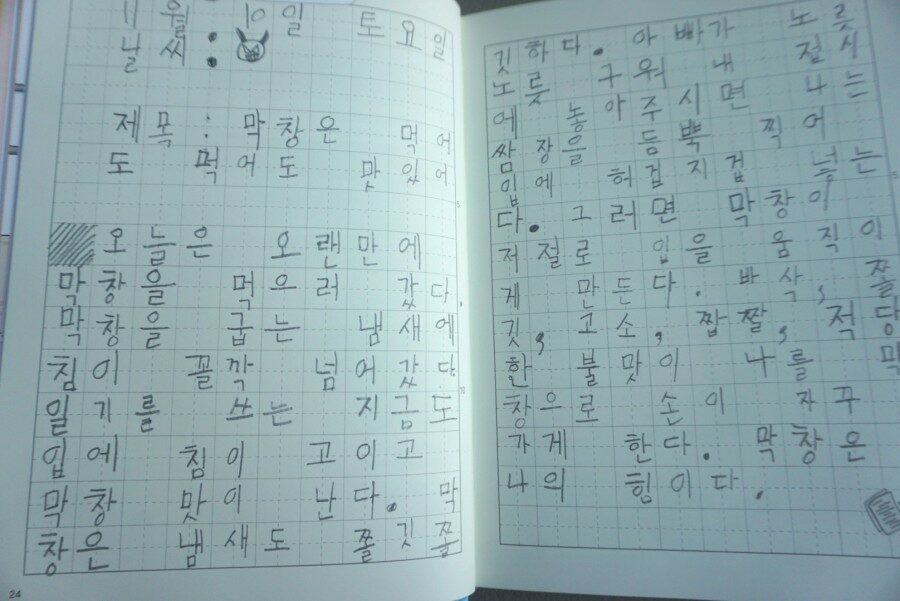 11월 10일 토요일
날씨:
제목: 막창은 먹어
도 먹어도 맛있어
오늘은 오랜만에
막창을 먹으러 갔다.
막창을 굽는 냄새에
침이 꼴깍 넘어갔다
일기를 쓰는 지금도
입에 침이 고이고
막창 맛이 난다. 막
창은 냄새도 쫄깃쫄
24
깃하다. 아빠가 노릇
노릇 구워 내 접시
에 놓아주시면 나는
쌈장을 듬뿍 찍어
입에 허겁지겁 넣는
다. 그러면 막창이
저절로 입을 움직이
게 만든다. 바삭, 쫄
깃, 고소, 짭짤, 적당
한 불맛이 나를 막
창으로 손이 자꾸
가게 한다. 막창은
나의 힘이다.